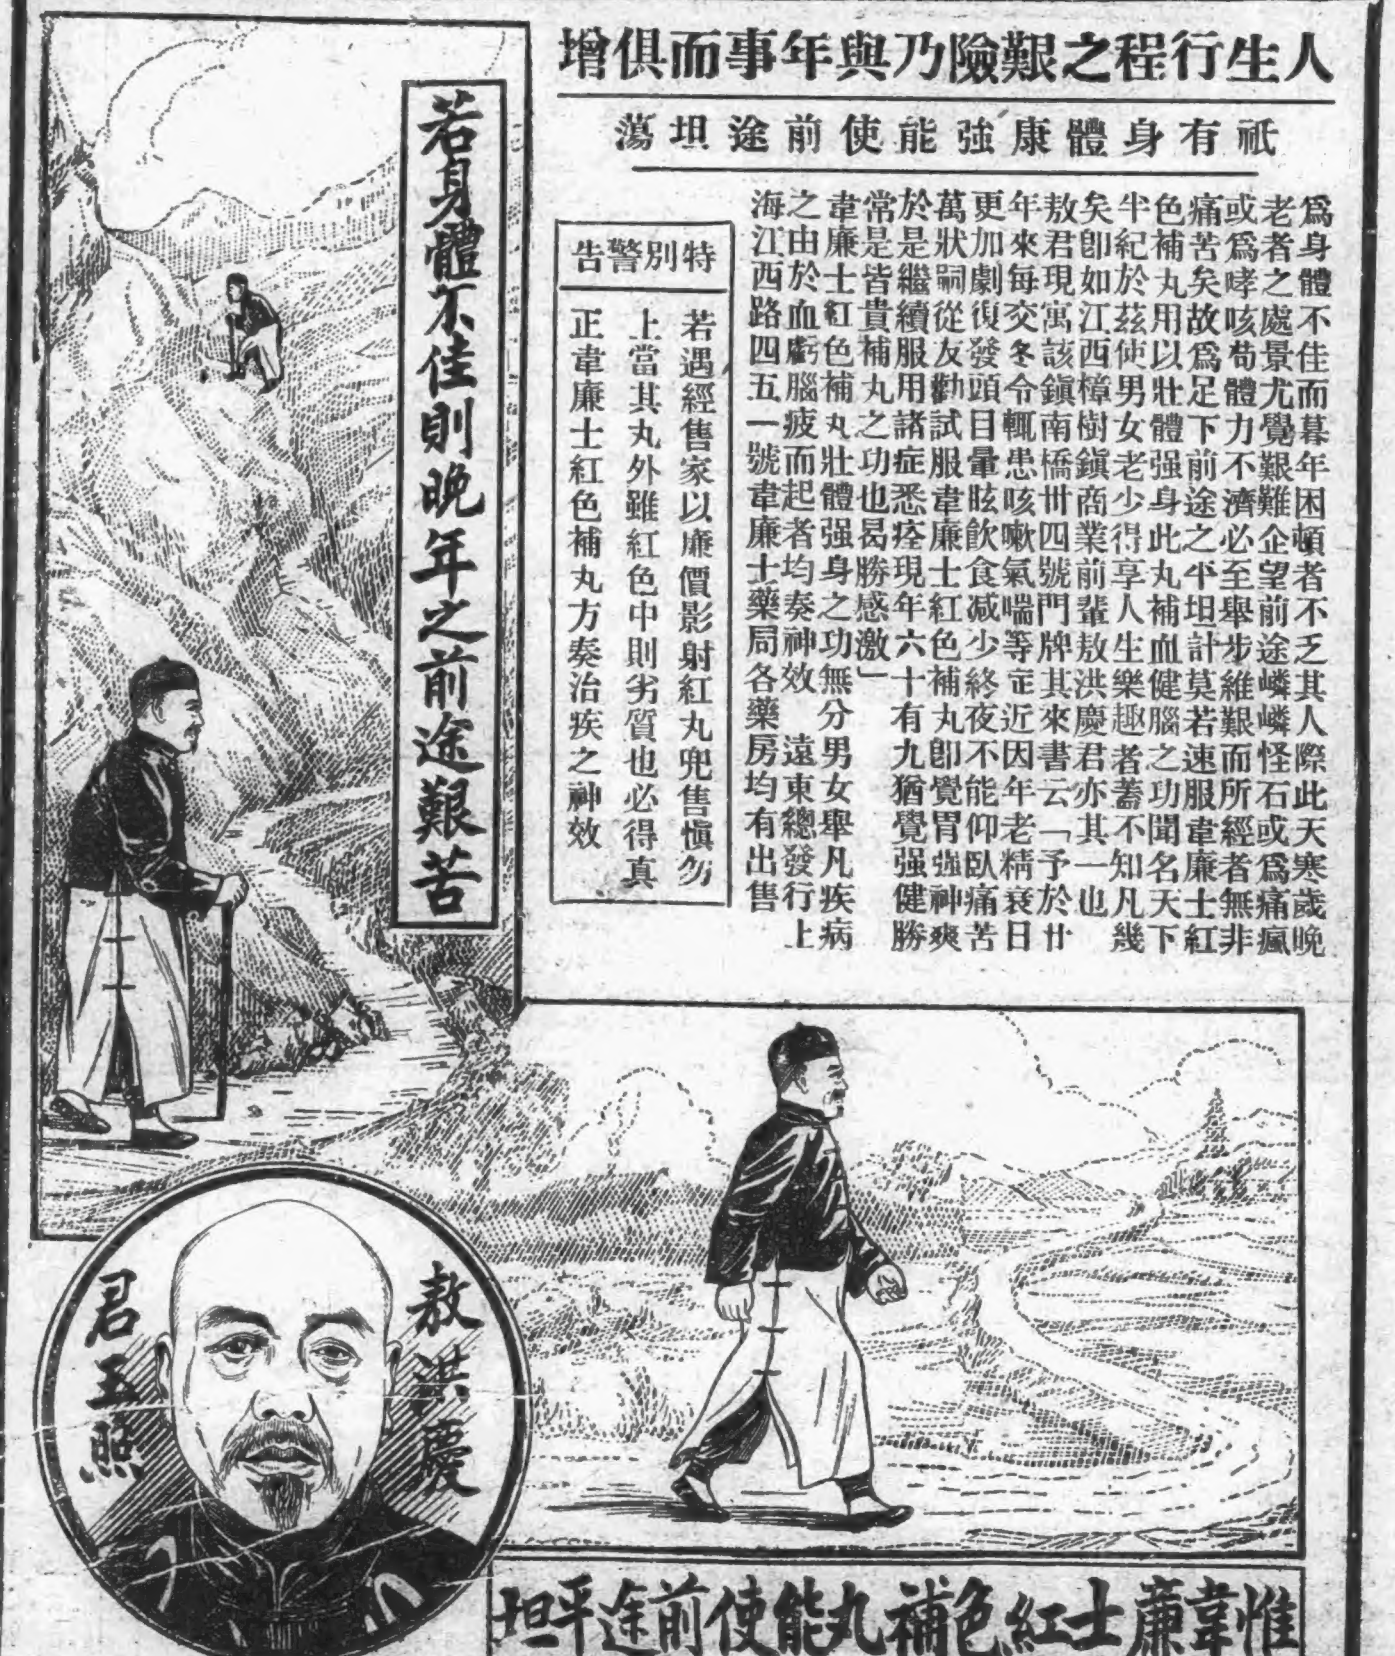 人生行程之艱險乃與年事而俱增
祇有身體康強能使前途坦蕩
爲身體不佳而暮年困頓者不乏其人際此天寒歲晚
老者之處景尤覺艱難企望前途嶙嶙怪石或爲痛瘋
或爲哮咳苟體力不濟必至舉步維艱而所經者無非
痛苦矣故爲足下前途之平坦計莫若速服韋廉士紅
色補丸用以壯體强身此丸補血健腦之功聞名天下
半紀於茲使男女老少得享人生樂趣者蓋不知凡幾
矣卽如江西樟樹鎭商業前輩敖洪慶君亦其一也
敖君現寓該鎭南橋卅四號門牌其來書云「予於廿
年來每交冬令輒患咳嗽氣喘等症近因年老精衰日
更加劇復發頭目暈眩飲食减少終夜不能仰臥痛苦
萬狀嗣從友勸試服韋廉士紅色補丸卽覺胃强神爽
於是繼續服用諸症悉痊現年六十有九猶覺强健勝
常是皆貴補丸之功也曷勝感激」
韋廉士紅色補丸壯體强身之功無分男女舉凡疾病
之由於血虧腦疲而起者均奏神效　遠東總發行上
海江西路四五一號韋廉士藥局各藥房均有出售
特別警告
若遇經售家以廉價影射紅丸兜售愼勿
上當其丸外雖紅色中則劣質也必得真
正韋廉士紅色補丸方奏治疾之神效
若身體不佳則晚年之前途艱苦
敖洪慶
君玉照
惟韋廉士紅色補丸能使前途平坦